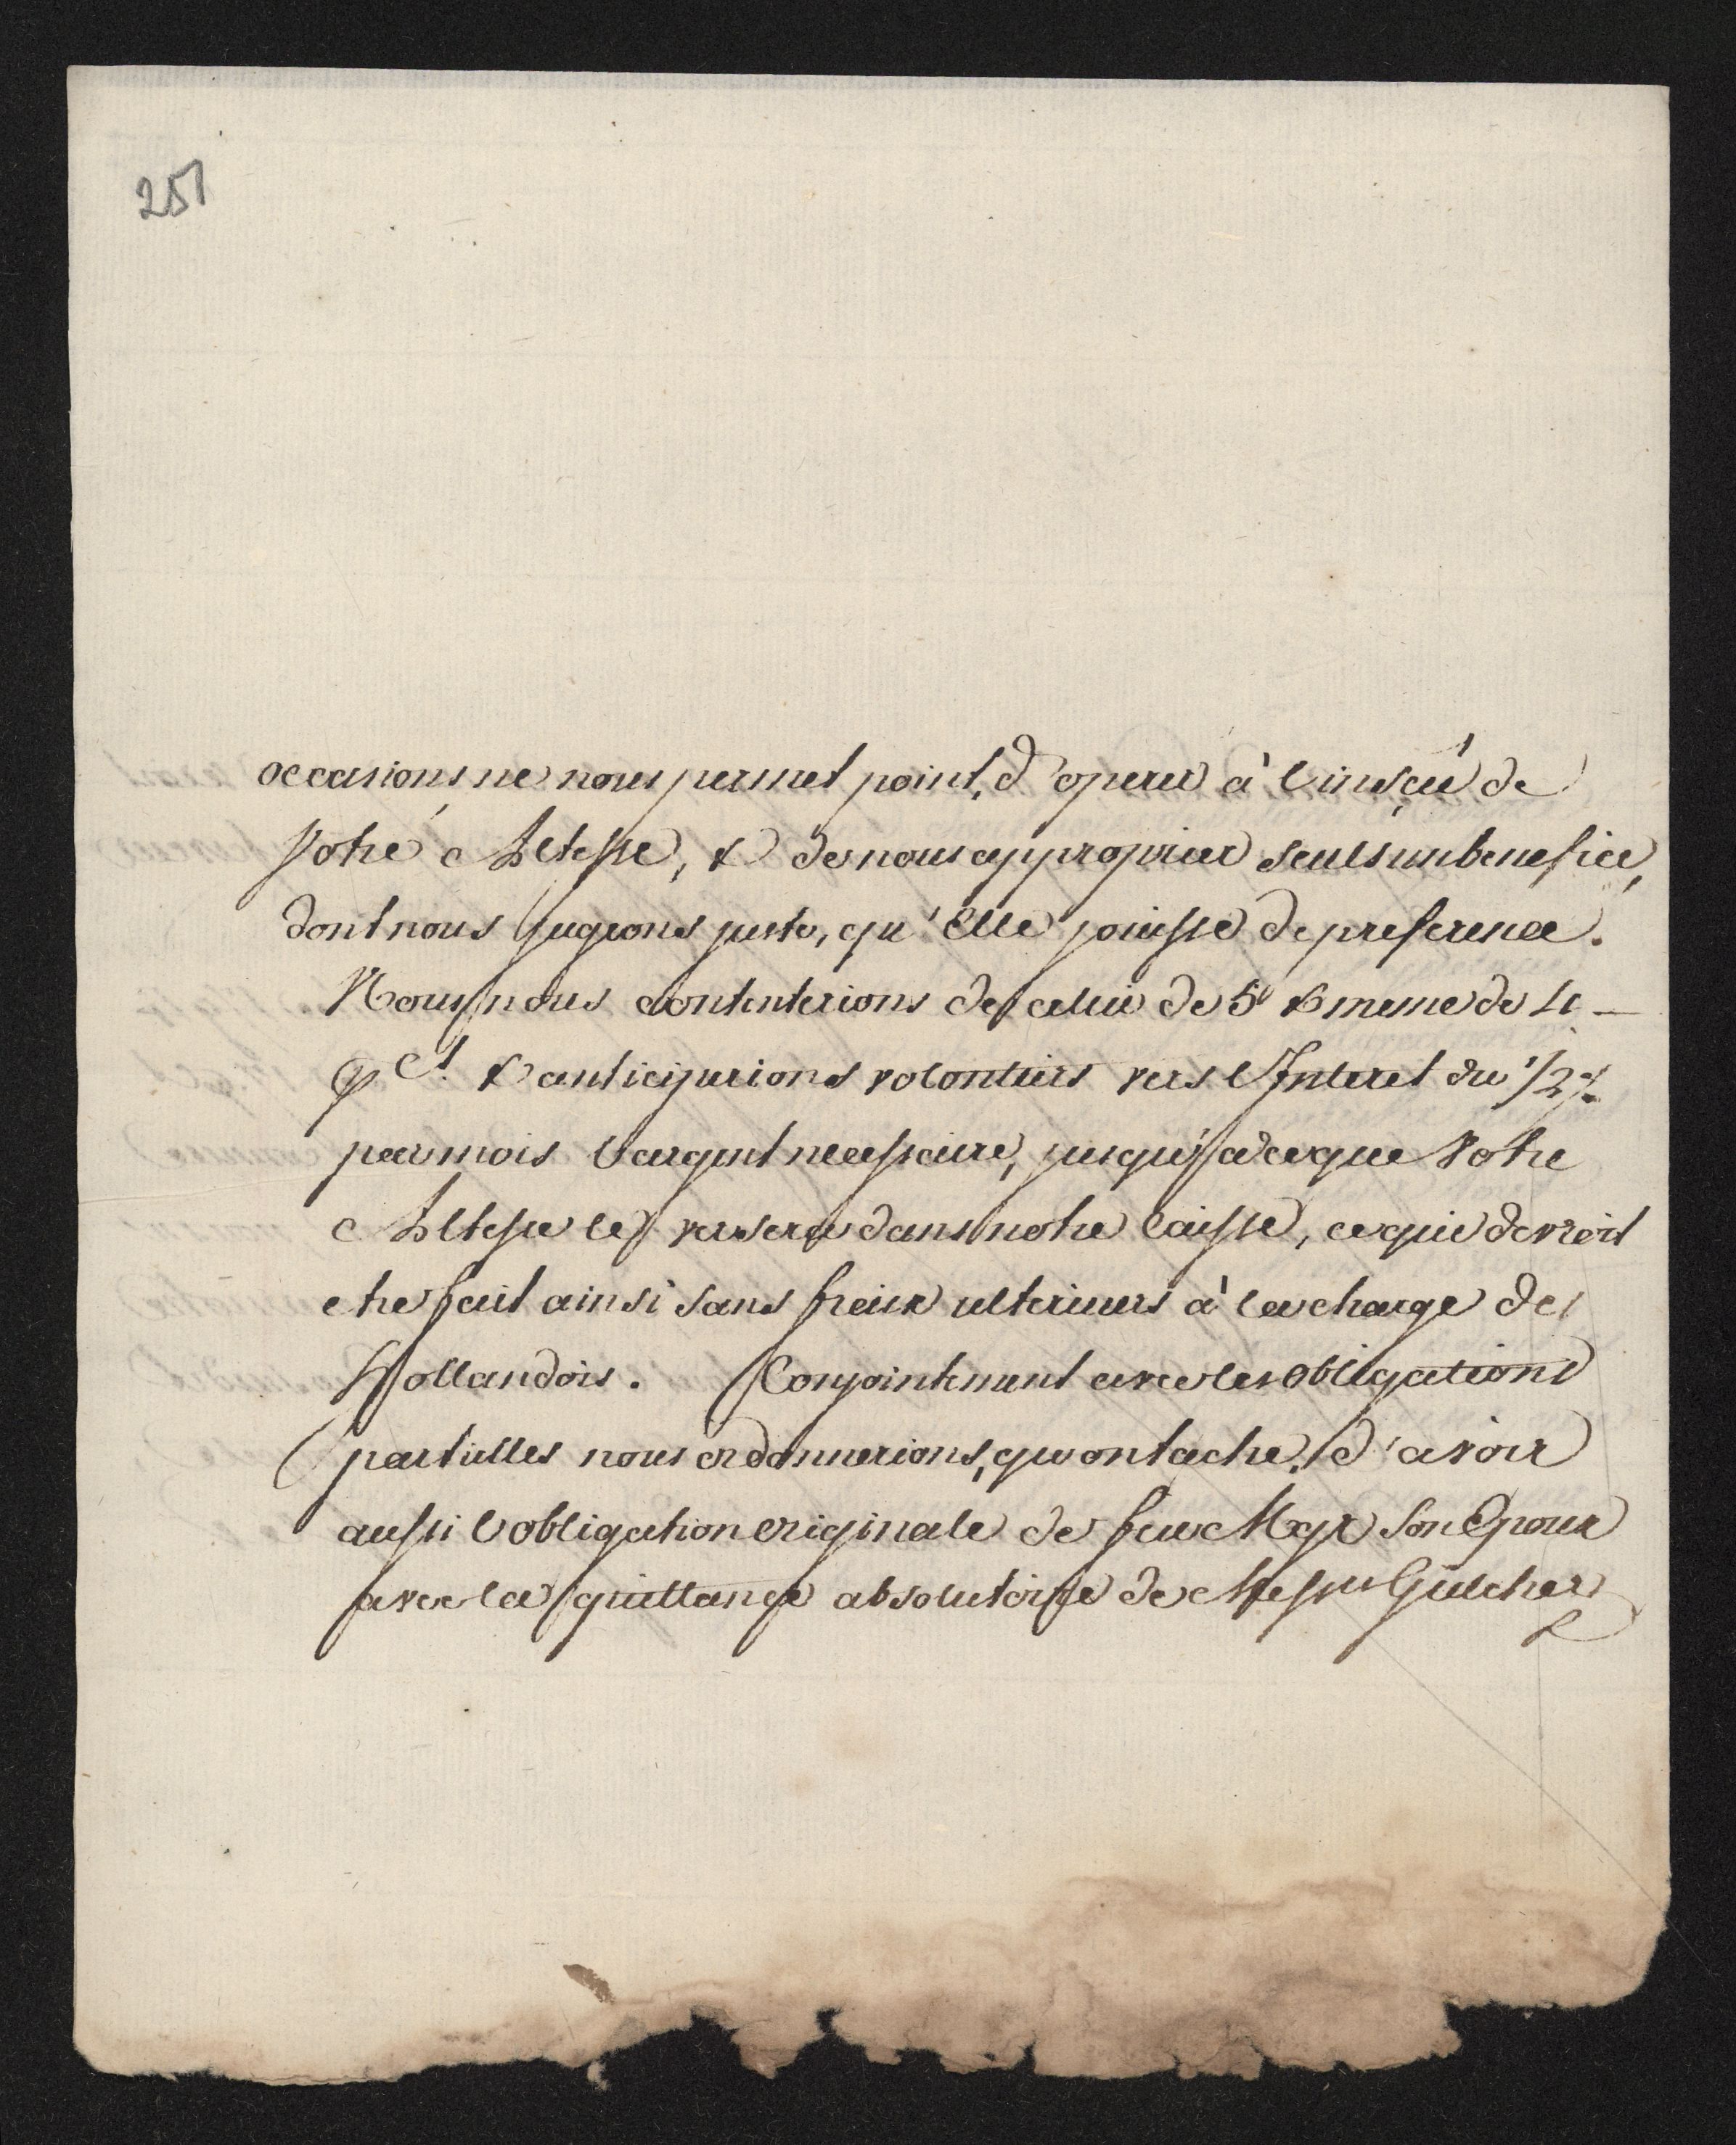 251
occasions ne nous permet point, d'operer à l'insçû de
Votre Altesse, & de nous approprier seuls un benefice,
dont nous jugeons juste, qu'Elle jouisse de preference.
Nous nous contenterions de celui de 5 & meme de 4 —
p Ct. & anticiperions volontiers vers l'Interet du 1/2 %
par mois l'argent necessaire, jusqu'à ce que Votre
Altesse les versera dans notre Caisse, ce qui devroit
etre fait ainsi sans fraix ulterieurs à la charge des
Hollandois. Conjointement avec les obligations
partielles nous ordonnerions, qu'on tache, d'avoir
aussi l'obligation originale de feu Mgr Son Epoux
avec la quittance absolutoire de Messrs Gulcher